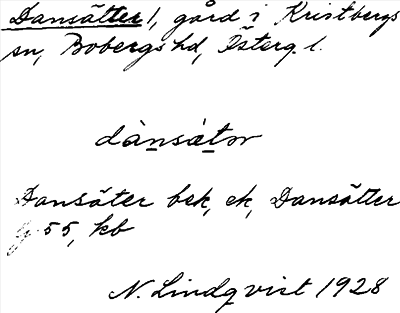 Dansätter 1, gård i Kristbergs
sn, Bobergs hd, Österg. l.
dànsàtər
Dansäter bek, ek, Dansätter
g. 55, kb
N. Lindqvist 1928